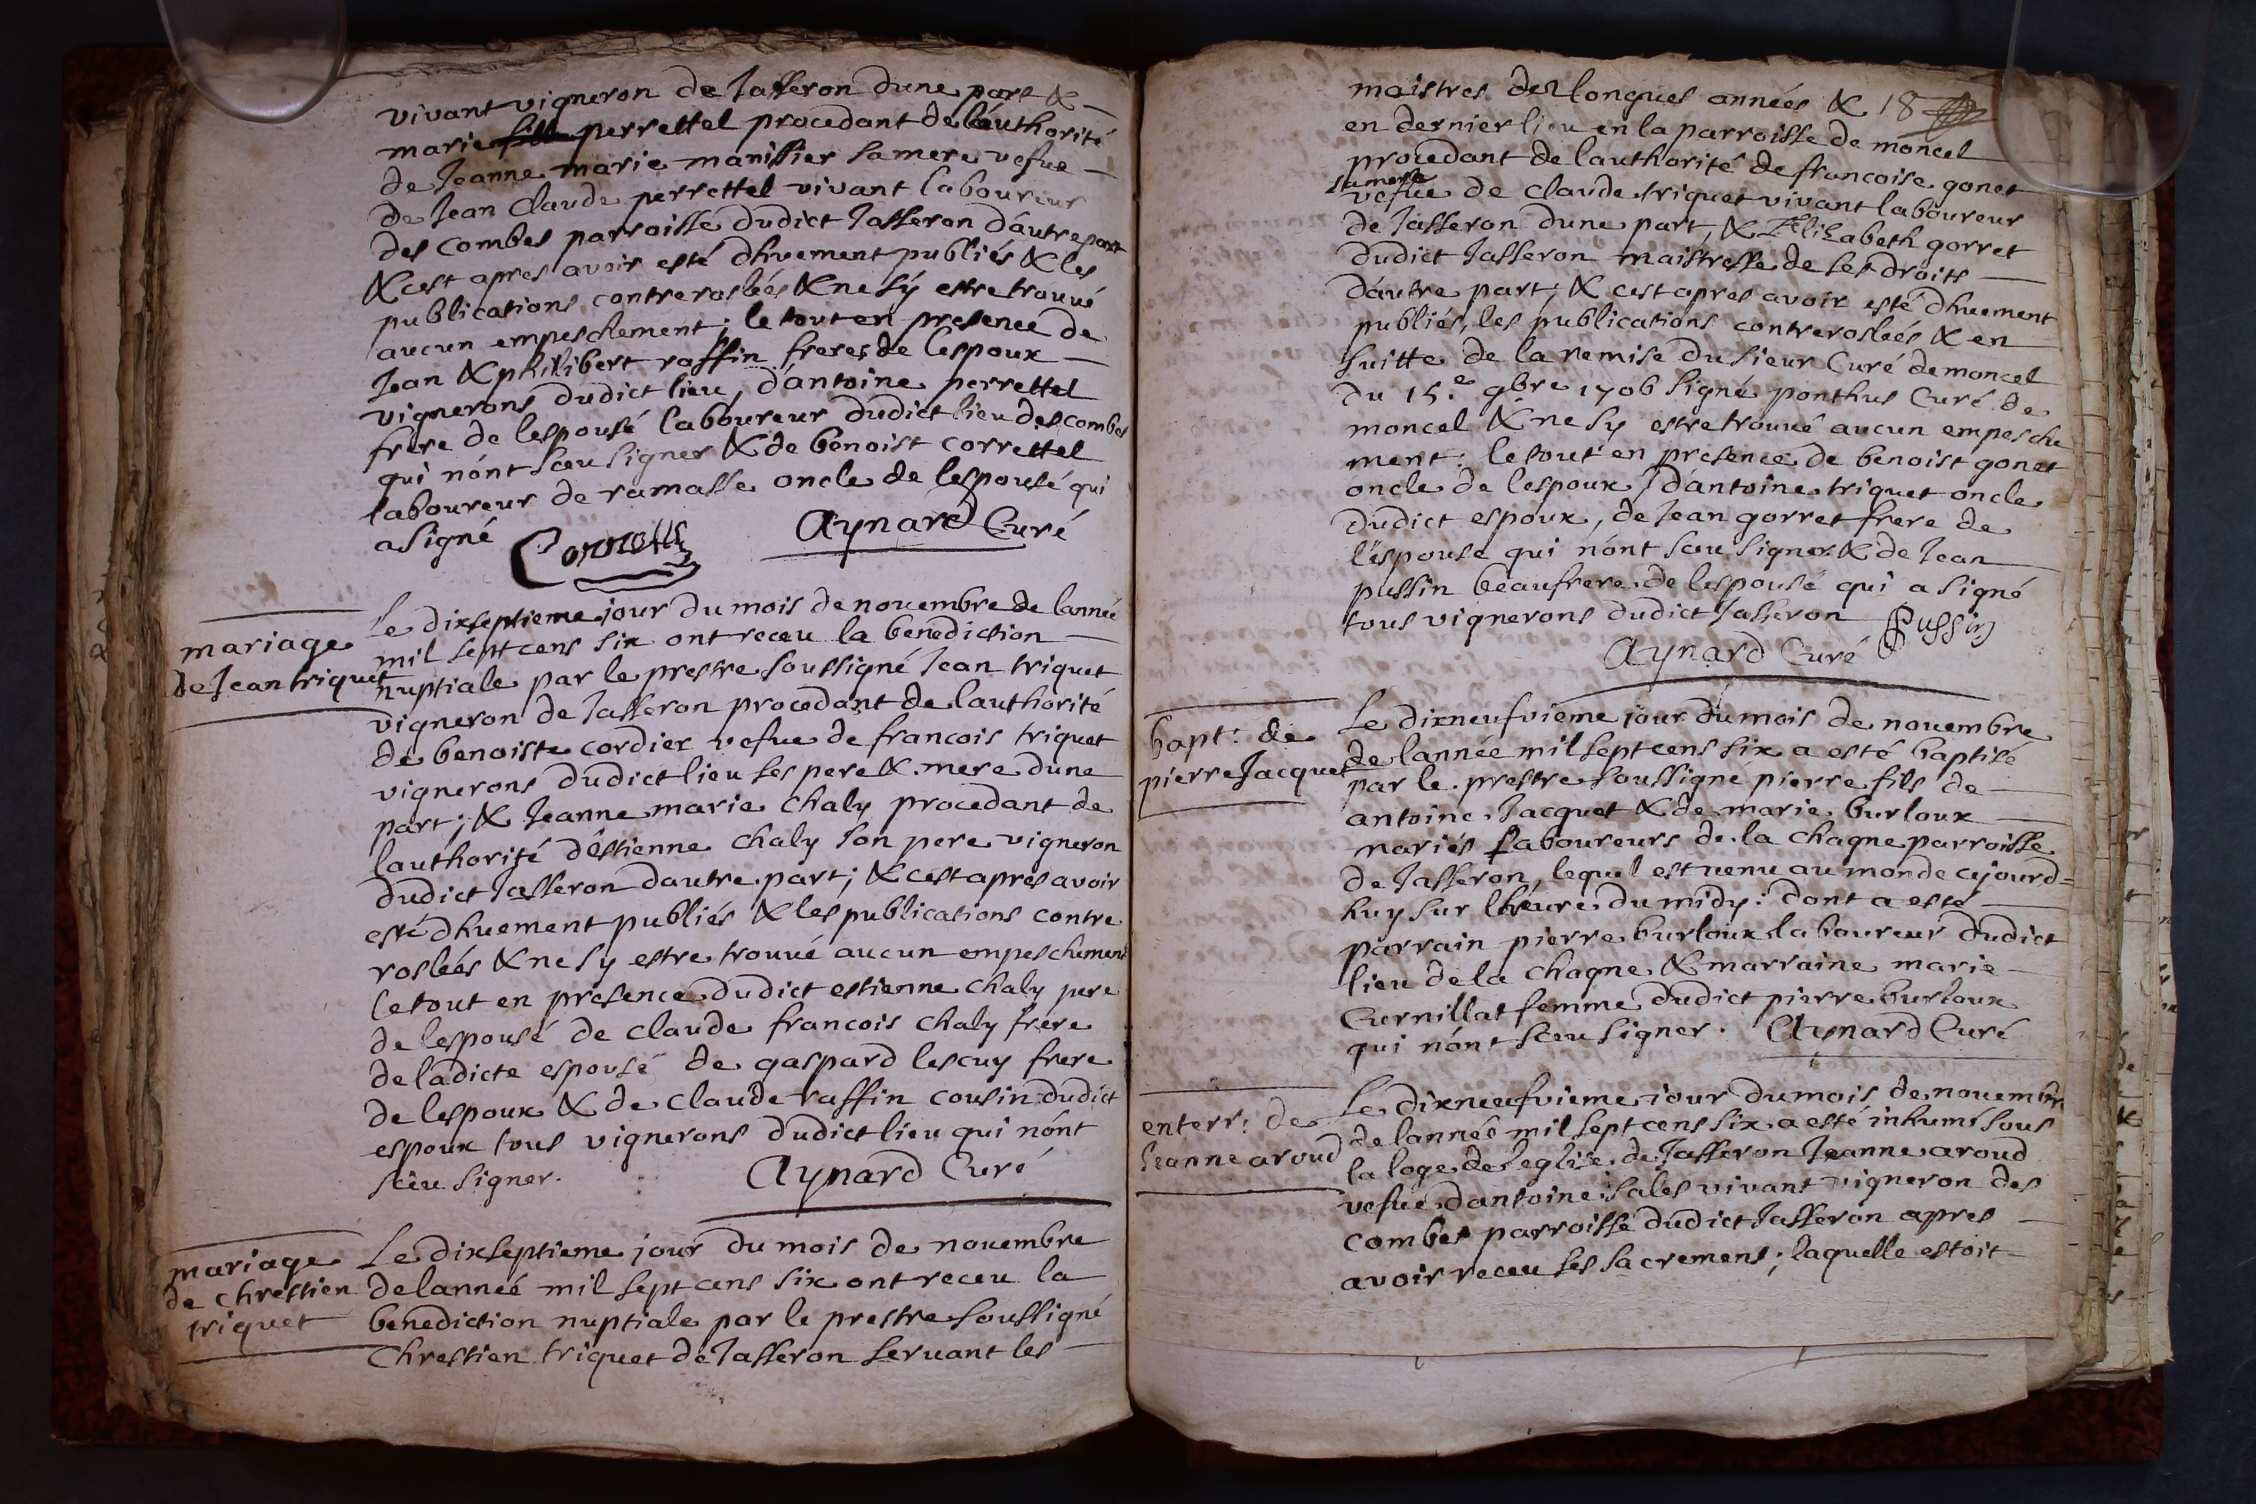 vivant vigneron de Jasseron dune part &
marie fille perrettel procedant de lauthorité
de Jeanne marie manissier sa mere vefue
de Jean Claude perrettel vivant laboureur
des combes parroisse dudict Jasseron d'autre part
& cest apres avoir esté dhuement publiés & les
publications contreroslées & ne sÿ estre trouué
aucun empeschement; le tout en presence de
Jean & philibert raffin freres de lespoux
vignerons dudict lieu, d'antoine perrettel
frere de lespousé laboureur dudict lieu des combes
qui n'ont sceu signer & de benoist correttel
laboureur de ramasse oncle de lespousé qui
a signé
Aynard Curé
mariage
de Jean triquet
Le dixseptieme jour du mois de nouembre de lanneé
mil sept cens six ont receu la benediction
nuptiale par le prestre soussigné Jean triquet
vigneron de Jasseron procedant de lauthorité
de benoiste cordier vefue de francois triquet
vignerons dudict lieu ses pere & mere dune
part; & Jeanne marie chaly procedant de
lauthorité d'estienne chaly son pere vigneron
dudict Jasseron dautre part; & cest apres avoir
esté dhuement publiés & les publications contre
rosleés & ne sy estre trouué aucun empeschement
le tout en presence dudict estienne chaly pere
de lespousé de claude francois chaly frere
de ladicte espousé de gaspard lescuy frere
de lespoux & de claude raffin cousin dudict
espoux tous vignerons dudict lieu qui n'ont
sceu signer. Aynard Curé
mariage
de chrestien
triquet
Le dixseptieme jour du mois de nouembre
de lanneé mil sept cens six ont receu la
benediction nuptiale par le prestre soussigné
Chrestien triquet de Jasseron seruant les
maistres des longues années & 18
en dernier lieu en la parroisse de moncel
procedant de lauthorité de francoise gonet
sa mere
vefue de claude triquet vivant laboureur
de Jasseron dune part, & Elizabeth gorret
dudict Jasseron maistresse de ses droits
d'autre part; & cest apres avoir esté dhuement
publiés, les publications contrerosleés & en
suitte de la remise du sieur Curé de moncel
du 15.e 9bre 1706 signé ponthus Curé de
moncel & ne sy estre trouué aucun empesche
ment; le tout en presence de benoist gonet
oncle de lespoux, d'antoine triquet oncle
dudict espoux, de Jean gorret frere de
lespouse qui n'ont sceu signer & de Jean
pussin beaufrere de lespousé qui a signé
tous vignerons dudict Jasseron Pussin
Aynard Curé
bapt: de
pierre Jacquet
Le dixneufvieme jour du mois de nouembre
de lannée mil sept cens six a esté baptisé
par le prestre soussigne pierre fils de
antoine Jacquet & de marie burloux
mariés Laboureurs de la chagne parroisse
de Jasseron, lequel est venu au monde cejourd=
huy sur lheure du midy: dont a esté
parrain pierre burloux laboureur dudict
lieu de la chagne & marraine marie
Curnillat femme dudict pierre burloux
qui n'ont sceu signer. Aynard Curé
enterr: de
Jeanne aroud
Le dixneufvieme jour du mois de nouembre
de lanneé mil sept cens six a esté inhumé sous
la loge de leglise de Jasseron Jeanne aroud
vefue d'antoine sales vivant vigneron des
combes parroisse dudict Jasseron apres
avoir receu ses sacremens; laquelle estoit